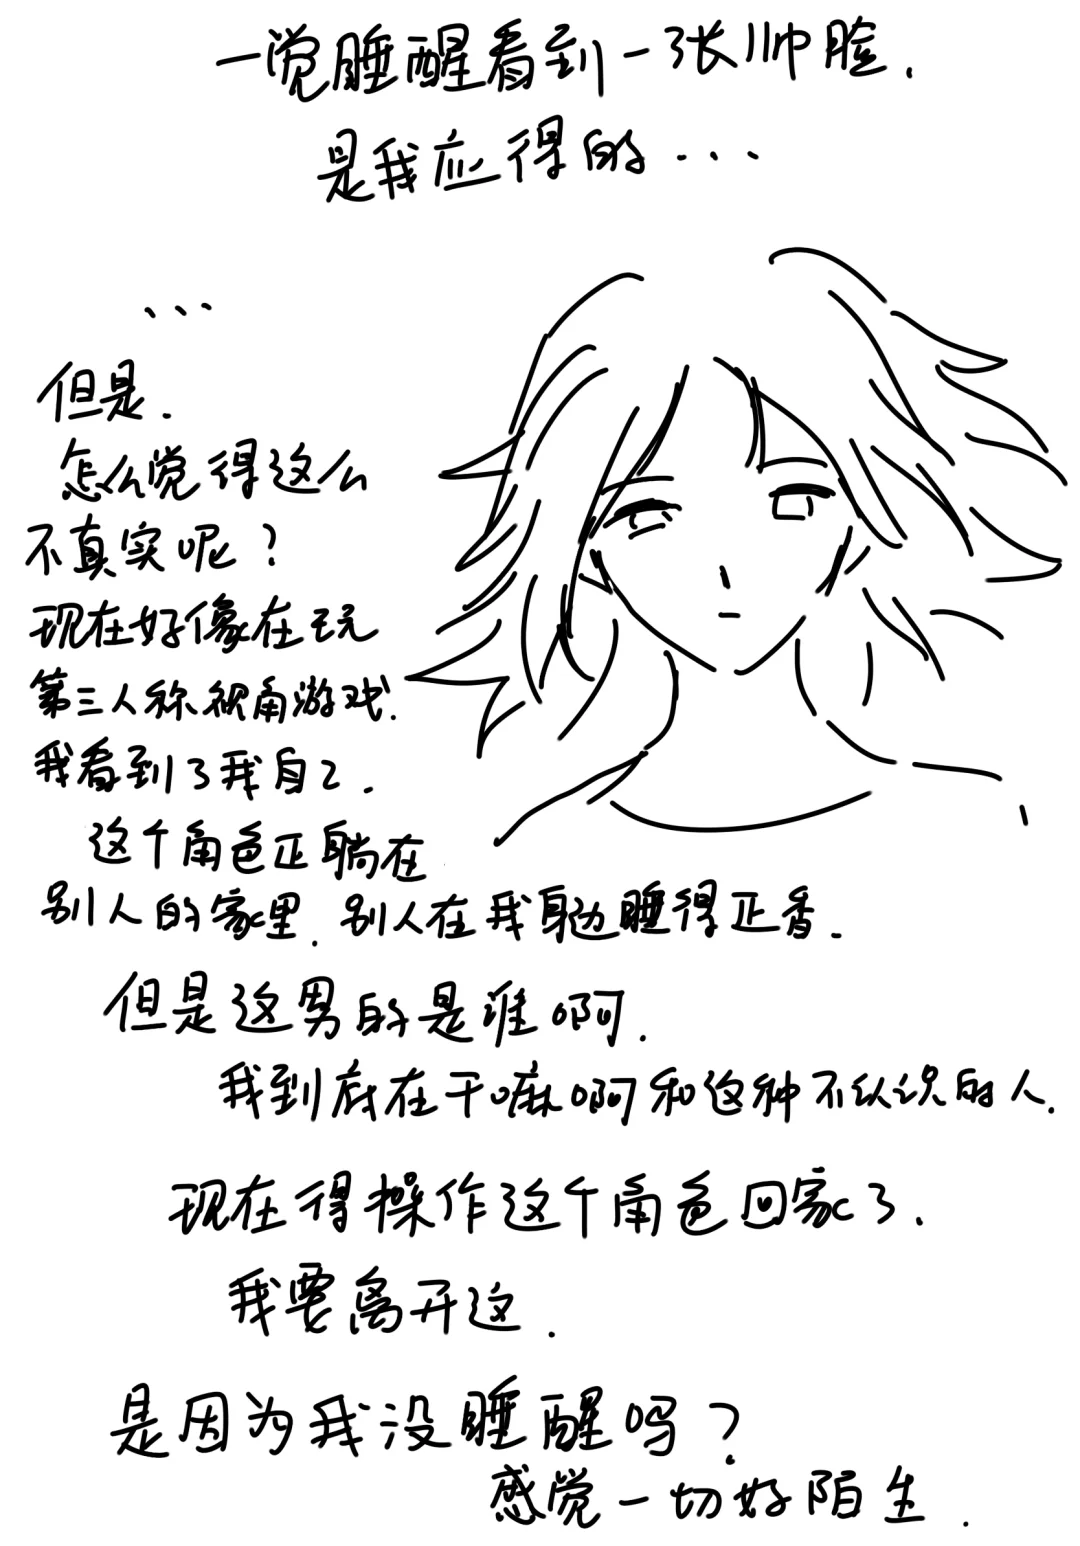 一觉睡醒看到一张帅脸.
是我应得的...
...
但是.
怎么觉得这么
不真实呢?
现在好像在玩
第三人称视角游戏.
我看到了我自己.
这个角色正躺在
别人的家里.别人在我身边睡得正香.
但是这男的是谁啊.
我到底在干嘛啊和这种不认识的人.
现在得操作这个角色回家了.
我要离开这.
是因为我没睡醒吗?
感觉一切好陌生.